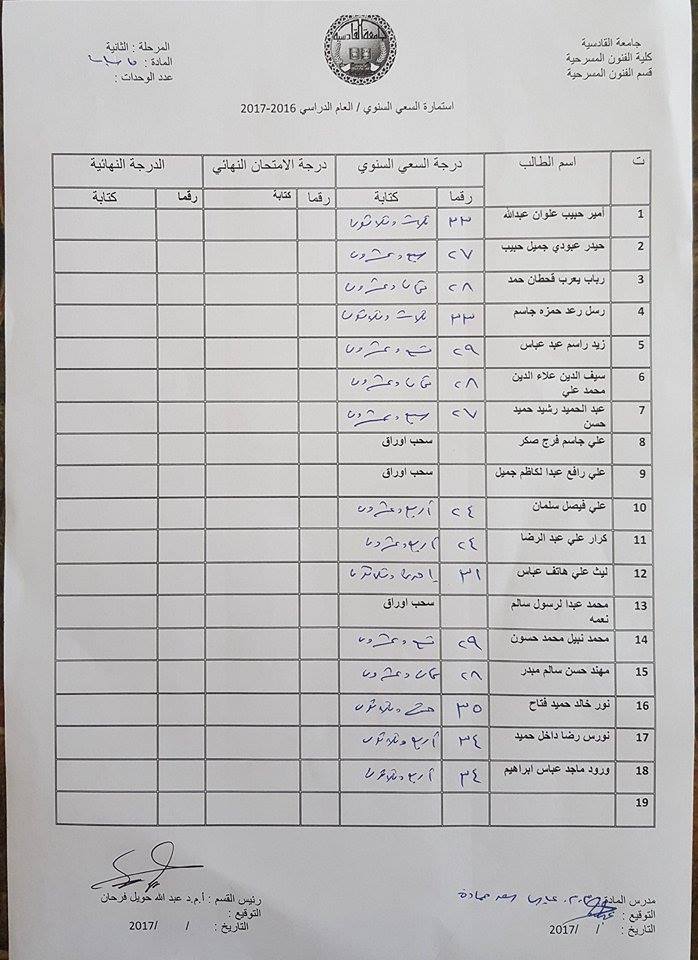 جامعة القادسية
كلية الفنون المسرحية
قسم الفنون المسرحية
جامعة القادسية
المرحلة : الثانية
المادة :
عدد الوحدات :
استمارة السعي السنوي / العام الدراسي 2016-2017
ت اسم الطالب درجة السعي السنوي درجة الامتحان النهائي الدرجة النهائية
رقما كتابة رقما كتابة رقما كتابة
1 أمير حبيب علوان عبدالله ٣٣ ثلاث وثلاثون
2 حيدر عبودي جميل حبيب ٢٧ سبع وعشرون
3 رباب يعرب قحطان حمد ٢٨ ثمان وعشرون
4 رسل رعد حمزه جاسم ٣٣ ثلاث وثلاثون
5 زيد راسم عبد عباس ٢٩ تسع وعشرون
6 سيف الدين علاء الدين محمد علي ٢٨ ثمان وعشرون
7 عبد الحميد رشيد حميد حسن ٢٧ سبع وعشرون
8 علي جاسم فرج صكر سحب اوراق
9 علي رافع عبدا لكاظم جميل سحب اوراق
10 علي فيصل سلمان ٢٤ أربع وعشرون
11 كرار علي عبد الرضا ٢٤ أربع وعشرون
12 ليث علي هاتف عباس ٣١ إحدى وثلاثون
13 محمد عبدا لرسول سالم نعمه سحب اوراق
14 محمد نبيل محمد حسون ٢٩ تسع وعشرون
15 مهند حسن سالم مبدر ٢٨ ثمان وعشرون
16 نور خالد حميد فتاح ٣٥ خمس وثلاثون
17 نورس رضا داخل حميد ٣٤ أربع وثلاثون
18 ورود ماجد عباس ابراهيم ٣٤ أربع وثلاثون
19
مدرس المادة :
التوقيع :
التاريخ : / /2017
رئيس القسم : أ.م.د عبد الله حويل فرحان
التوقيع :
التاريخ : / /2017